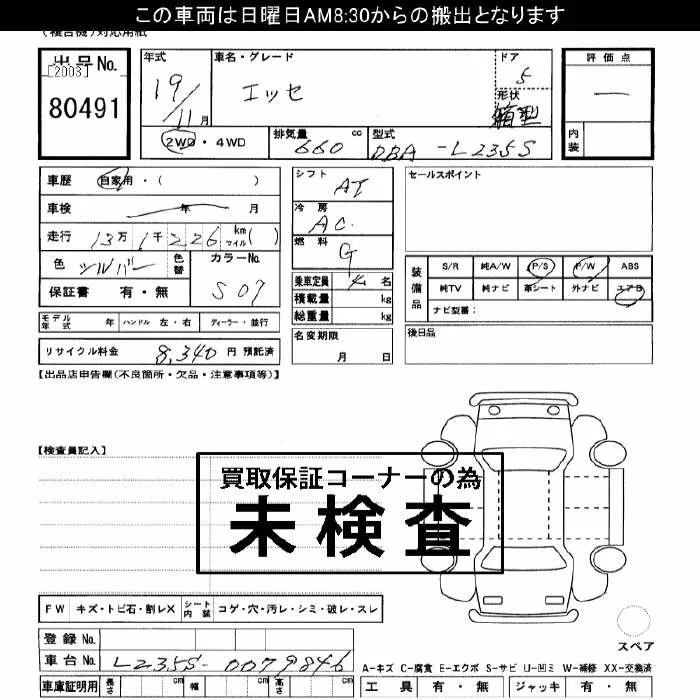 この車両は日曜日AM8:30からの搬出となります
(複合機)対応用紙
出品No.
[2003]
80491
年式
19/11月
車名・グレード
エッセ
ドア
5
形状
箱型
2WD・4WD
排気量 660 cc
型式 DBA-L235S
評価点
—
内装
車歴 自家用・( )
車検 年 月
走行 13万1千226 km マイル( )
色 シルバー 色替
カラーNo. S07
保証書 有・無
シフト AT
冷房 AC.
燃料 G
乗車定員 4名
積載量 kg
総重量 kg
セールスポイント
装備品
S/R 純A/W P/S P/W ABS
純TV 純ナビ 革シート 外ナビ エアB
ナビ型番:
モデル年式 年 ハンドル 左・右 ディーラー・並行
名変期限
月 日
後日品
リサイクル料金 8,340 円 預託済
【出品店申告欄(不良箇所・欠品・注意事項等)】
【検査員記入】
買取保証コーナーの為
未検査
FW キズ・トビ石・割レX シート内装 コゲ・穴・汚レ・シミ・破レ・スレ
スペア
登録No.
車台No. L235S-0079846
A-キズ C-腐食 E-エクボ S-サビ U-凹ミ W-補修 XX-交換済
車庫証明用 長さ cm 幅 cm 高さ cm
工具 有・無 ジャッキ 有・無